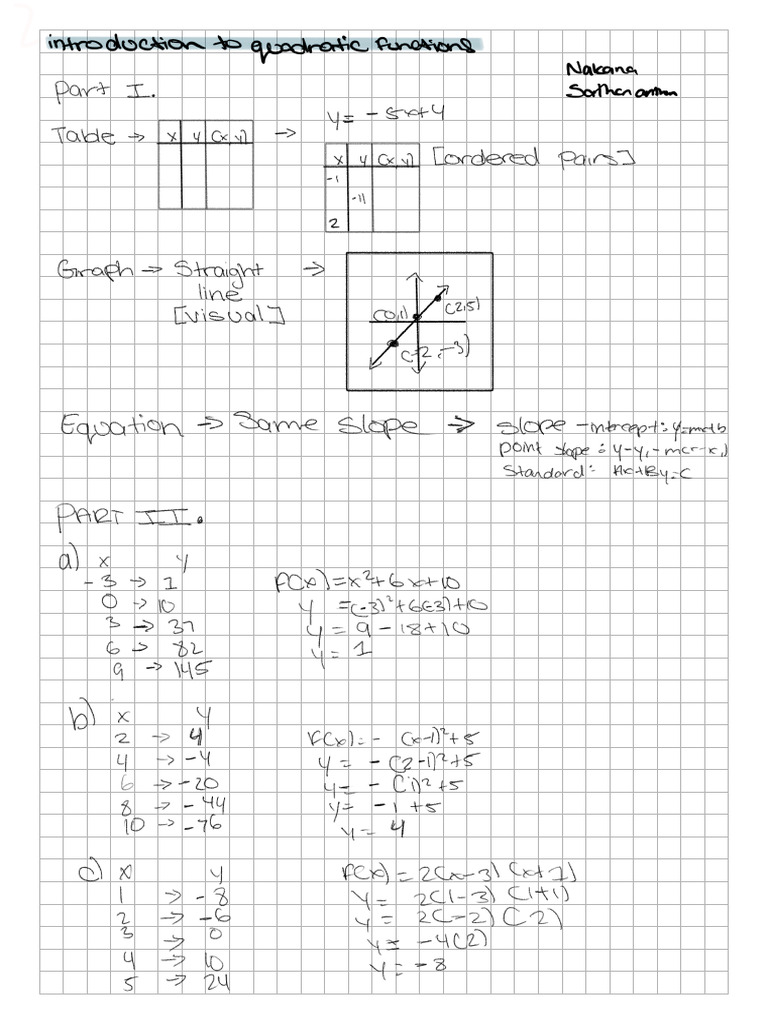 introduction to quadratic functions
Nakana
Part I.
y = -5x+4
Table → x y (x, y) →
x y (x, y) [ordered pairs]
-1
-11
2
Graph → Straight →
line
[visual]
(0,1) (2,5)
(-2,-3)
Equation → Same slope → slope-intercept: y=mx+b
point slope: y-y₁-m(x-x₁)
Standard: Ax+By=C
PART II.
a) x y
-3 → 1 f(x)=x²+6x+10
0 → 10 y =(-3)²+6(-3)+10
3 → 37 y = 9-18+10
6 → 82 y = 1
9 → 145
b) x y
2 → 4 f(x)=- (x-1)²+5
4 → -4 y = - (2-1)²+5
6 → -20 y = - (1)²+5
8 → -44 y= -1 +5
10 → -76 y= 4
c) x y f(x)=2(x-3) (x+1)
1 → -8 y= 2(1-3) (1+1)
2 → -6 y= 2(-2) (2)
3 → 0 y= -4(2)
4 → 10 y= -8
5 → 24